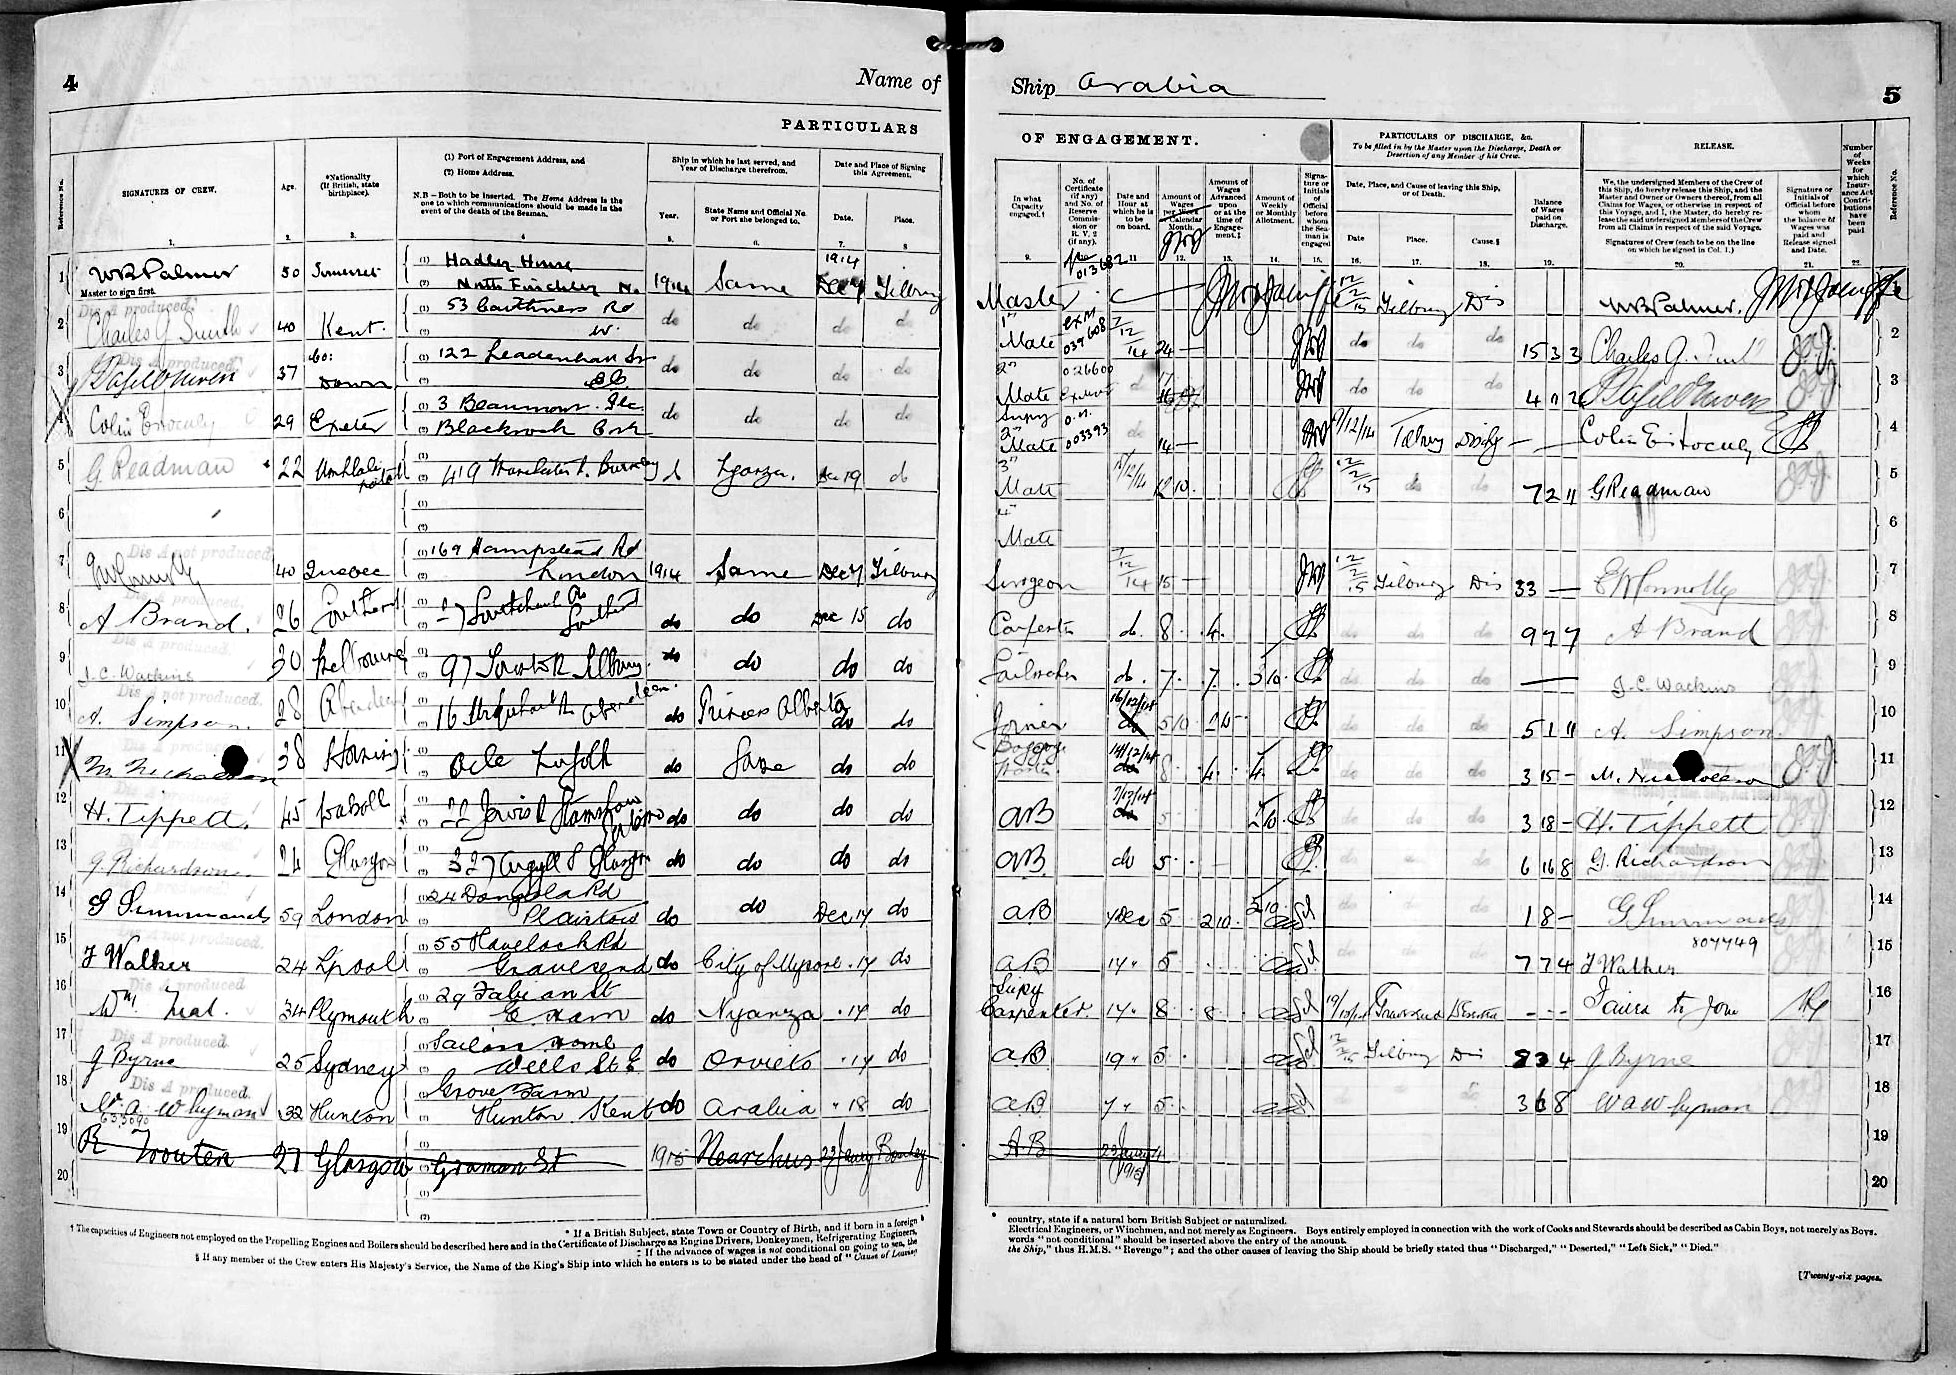 4
Name of
PARTICULARS
Reference No.
SIGNATURES OF CREW.
Age.
*Nationality
(If British, state
birthplace).
(1) Port of Engagement Address, and
(2) Home Address.
N.B.—Both to be inserted. The Home Address is the
one to which communications should be made in the
event of the death of the Seaman.
Ship in which he last served, and
Year of Discharge therefrom.
Year.
State Name and Official No.
or Port she belonged to.
Date and Place of Signing
this Agreement.
Date.
Place.
1. 2. 3. 4 5. 6. 7. 8
1 WB Palmer 50 Somerset (1) Hadley House
Master to sign first. (2) North Finchley No 1914 Same 1914 Dec 7 Tilbury
Dis A produced.
2 Charles G Smith 40 Kent. (1) 53 Caithness Rd
(2) W. do do do do
Dis A produced.
3 37 Co: Down (1) 122 Leadenhall St
(2) EC do do do do
4 Colin E 29 Exeter (1) 3 Beaumont
(2) Blackrock Cork do do do do
5 G. Readman 22 Umhlali Natal (1)
(2) 419 Manchester R. Burnley Dec 19 do
6 (1)
(2)
Dis A not produced
7 40 Quebec (1) 169 Hampstead Rd
(2) London 1914 Same Dec 7 Tilbury
Dis A produced.
8 A Brand. 26 Southend do do Dec 15 do
Dis A produced.
9 J. C. Watkins 30 Melbourne 97 Tilbury do do do do
Dis A not produced
10 A. Simpson. 28 Aberdeen 16 Urquhart R Aberdeen. do Princess Alberta do do
11 M Nicholson 38 Acle Norfolk do Same do do
12 H. Tippett. 45 do do do do
13 G Richardson 24 Glasgow 327 Argyll S Glasgow do do do do
14 G Simmonds 59 London (1) 24 Dongola Rd
(2) Plaistow do do Dec 17 do
Dis A not produced.
15 F Walker 24 Lpool (1) 55 Havelock Rd
(2) Gravesend do City of Mysore 17 do
Dis A produced
16 Wm Neal. 34 Plymouth (1) 29 Fabian St
(2) E. Ham do Nyanza 17 do
Dis A produced.
17 J Byrne 25 Sydney (1) Sailors Home
(2) Wells St E do Orvieto 17 do
Dis A produced.
18 W. A. Whyman 32 Hunton (1) Grove Farm
(2) Hunton Kent do Arabia 18 do
19 R Trouten 27 Glasgow (2) Graman St 1915 Nearchus 23 Jany Bombay
20 (1)
(2)
† The capacities of Engineers not employed on the Propelling Engines and Boilers should be described here and in the Certificate of Discharge as Engine Drivers, Donkeymen, Refrigerating Engineers,
* If a British Subject, state Town or Country of Birth, and if born in a foreign
‡ If the advance of wages is not conditional on going to sea, the
§ If any member of the Crew enters His Majesty's Service, the Name of the King's Ship into which he enters is to be stated under the head of "Cause of Leaving
Ship Arabia
5
OF ENGAGEMENT.
PARTICULARS OF DISCHARGE, &c.
To be filled in by the Master upon the Discharge, Death or
Desertion of any Member of his Crew.
RELEASE.
In what
Capacity
engaged.†
No. of
Certificate
(if any)
and No. of
Reserve
Commis-
sion or
R.V.2
(if any).
Date and
Hour at
which he is
to be
on board.
Amount of
Wages
per Week
or Calendar
Month.
Amount of
Wages
Advanced
upon
or at the
time of
Engage-
ment.‡
Amount of
Weekly
or Monthly
Allotment.
Signa-
ture or
Initials
of
Official
before
whom
the Sea-
man is
engaged
Date, Place, and Cause of leaving this Ship,
or of Death.
Date
Place.
Cause.§
Balance
of Wages
paid on
Discharge.
We, the undersigned Members of the Crew of
this Ship, do hereby release this Ship, and the
Master and Owner or Owners thereof, from all
Claims for Wages, or otherwise in respect of
this Voyage, and I, the Master, do hereby re-
lease the said undersigned Members of the Crew
from all Claims in respect of the said Voyage.
Signatures of Crew (each to be on the line
on which he signed in Col. 1.)
Signature or
Initials of
Official before
whom
the balance of
Wages was
paid and
Release signed
and Date.
Number
of
Weeks
for
which
Insur-
ance Act
Contri-
butions
have
been
paid
Reference No.
9. 11 12. 13. 14. 15. 16. 17. 18. 19. 20. 21. 22.
Master 013682 Tilbury Dis WB Palmer.
1st Mate 039608 7/12/14 24 — do do do 15 3 3 Charles G. Smith 2
2nd Mate 026600 17 do do 3
Supy 2nd Mate 003393 do 14 — 9/12/14 Tilbury — — Colin E 4
3rd Mate 12 10 12/2/15 do do 7 2 11 G Readman 5
4th Mate 6
Surgeon 7/12/14 15 — 12/2/15 Tilbury Dis 33 — E Connolly 7
Carpenter do. 8 4 do do do 9 7 7 A Brand 8
Sailmaker do. 7. 7. 3 10 do do do — J. C. Watkins 9
Joiner 16/12/14 5 10 do do do 5 1 11 A. Simpson. 10
Baggage Master 14/12/14 8 4. 4. do do do 3 15 — M. Nicholson 11
AB 7/12/14 5 2 10 do do do 3 18 — H. Tippett 12
AB do 5 — 6 16 8 G. Richardson 13
AB 7 Dec 5 2 10 do do do 1 8 — G Simmonds 14
807749
AB 17 5 do do do 7 7 4 F Walker 15
Supy Carpenter. 17 8 8 Gravesend Deserted - - - Failed to Join 16
AB 19 5 Tilbury Dis 8 3 4 J Byrne 17
AB 7 5 do do do 3 6 8 W A Whyman 18
A.B 23 Jany 1915 19
20
country, state if a natural born British Subject or naturalized.
Electrical Engineers, or Winchmen, and not merely as Engineers. Boys entirely employed in connection with the work of Cooks and Stewards should be described as Cabin Boys, not merely as Boys.
words "not conditional" should be inserted above the entry of the amount.
the Ship," thus H.M.S. "Revenge"; and the other causes of leaving the Ship should be briefly stated thus "Discharged," "Deserted," "Left Sick," "Died."
[Twenty-six pages.